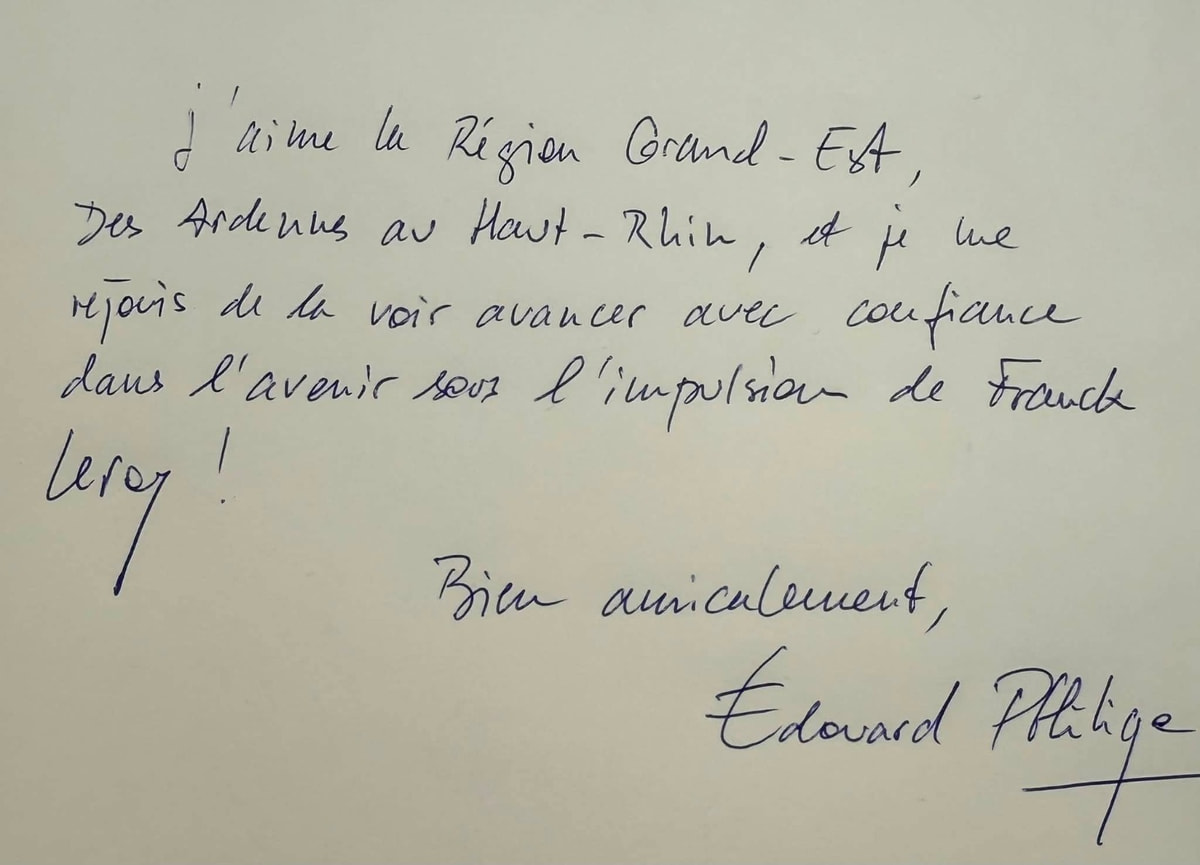 J'aime la Région Grand-Est,
Des Ardennes au Haut-Rhin, et je me
réjouis de la voir avancer avec confiance
dans l'avenir sous l'impulsion de Franck
Leroy !
Bien amicalement,
Édouard